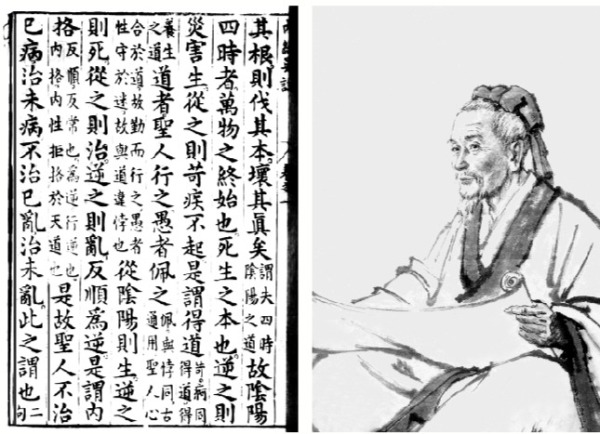 其根則伐其本壞其眞矣謂失四時陰陽之道故陰陽
四時者萬物之終始也死生之本也逆之則
災害生從之則苛疾不起是謂得道苛病同得道得
養生之道道者聖人行之愚者佩之佩與悖同古通用聖人心
合於道故勤而行之愚者性守於迷故與道違悖也從陰陽則生逆之
則死從之則治逆之則亂反順爲逆是謂内
格反順反常也爲逆行逆也内格内性拒格於天道也是故聖人不治
已病治未病不治已亂治未亂此之謂也二句